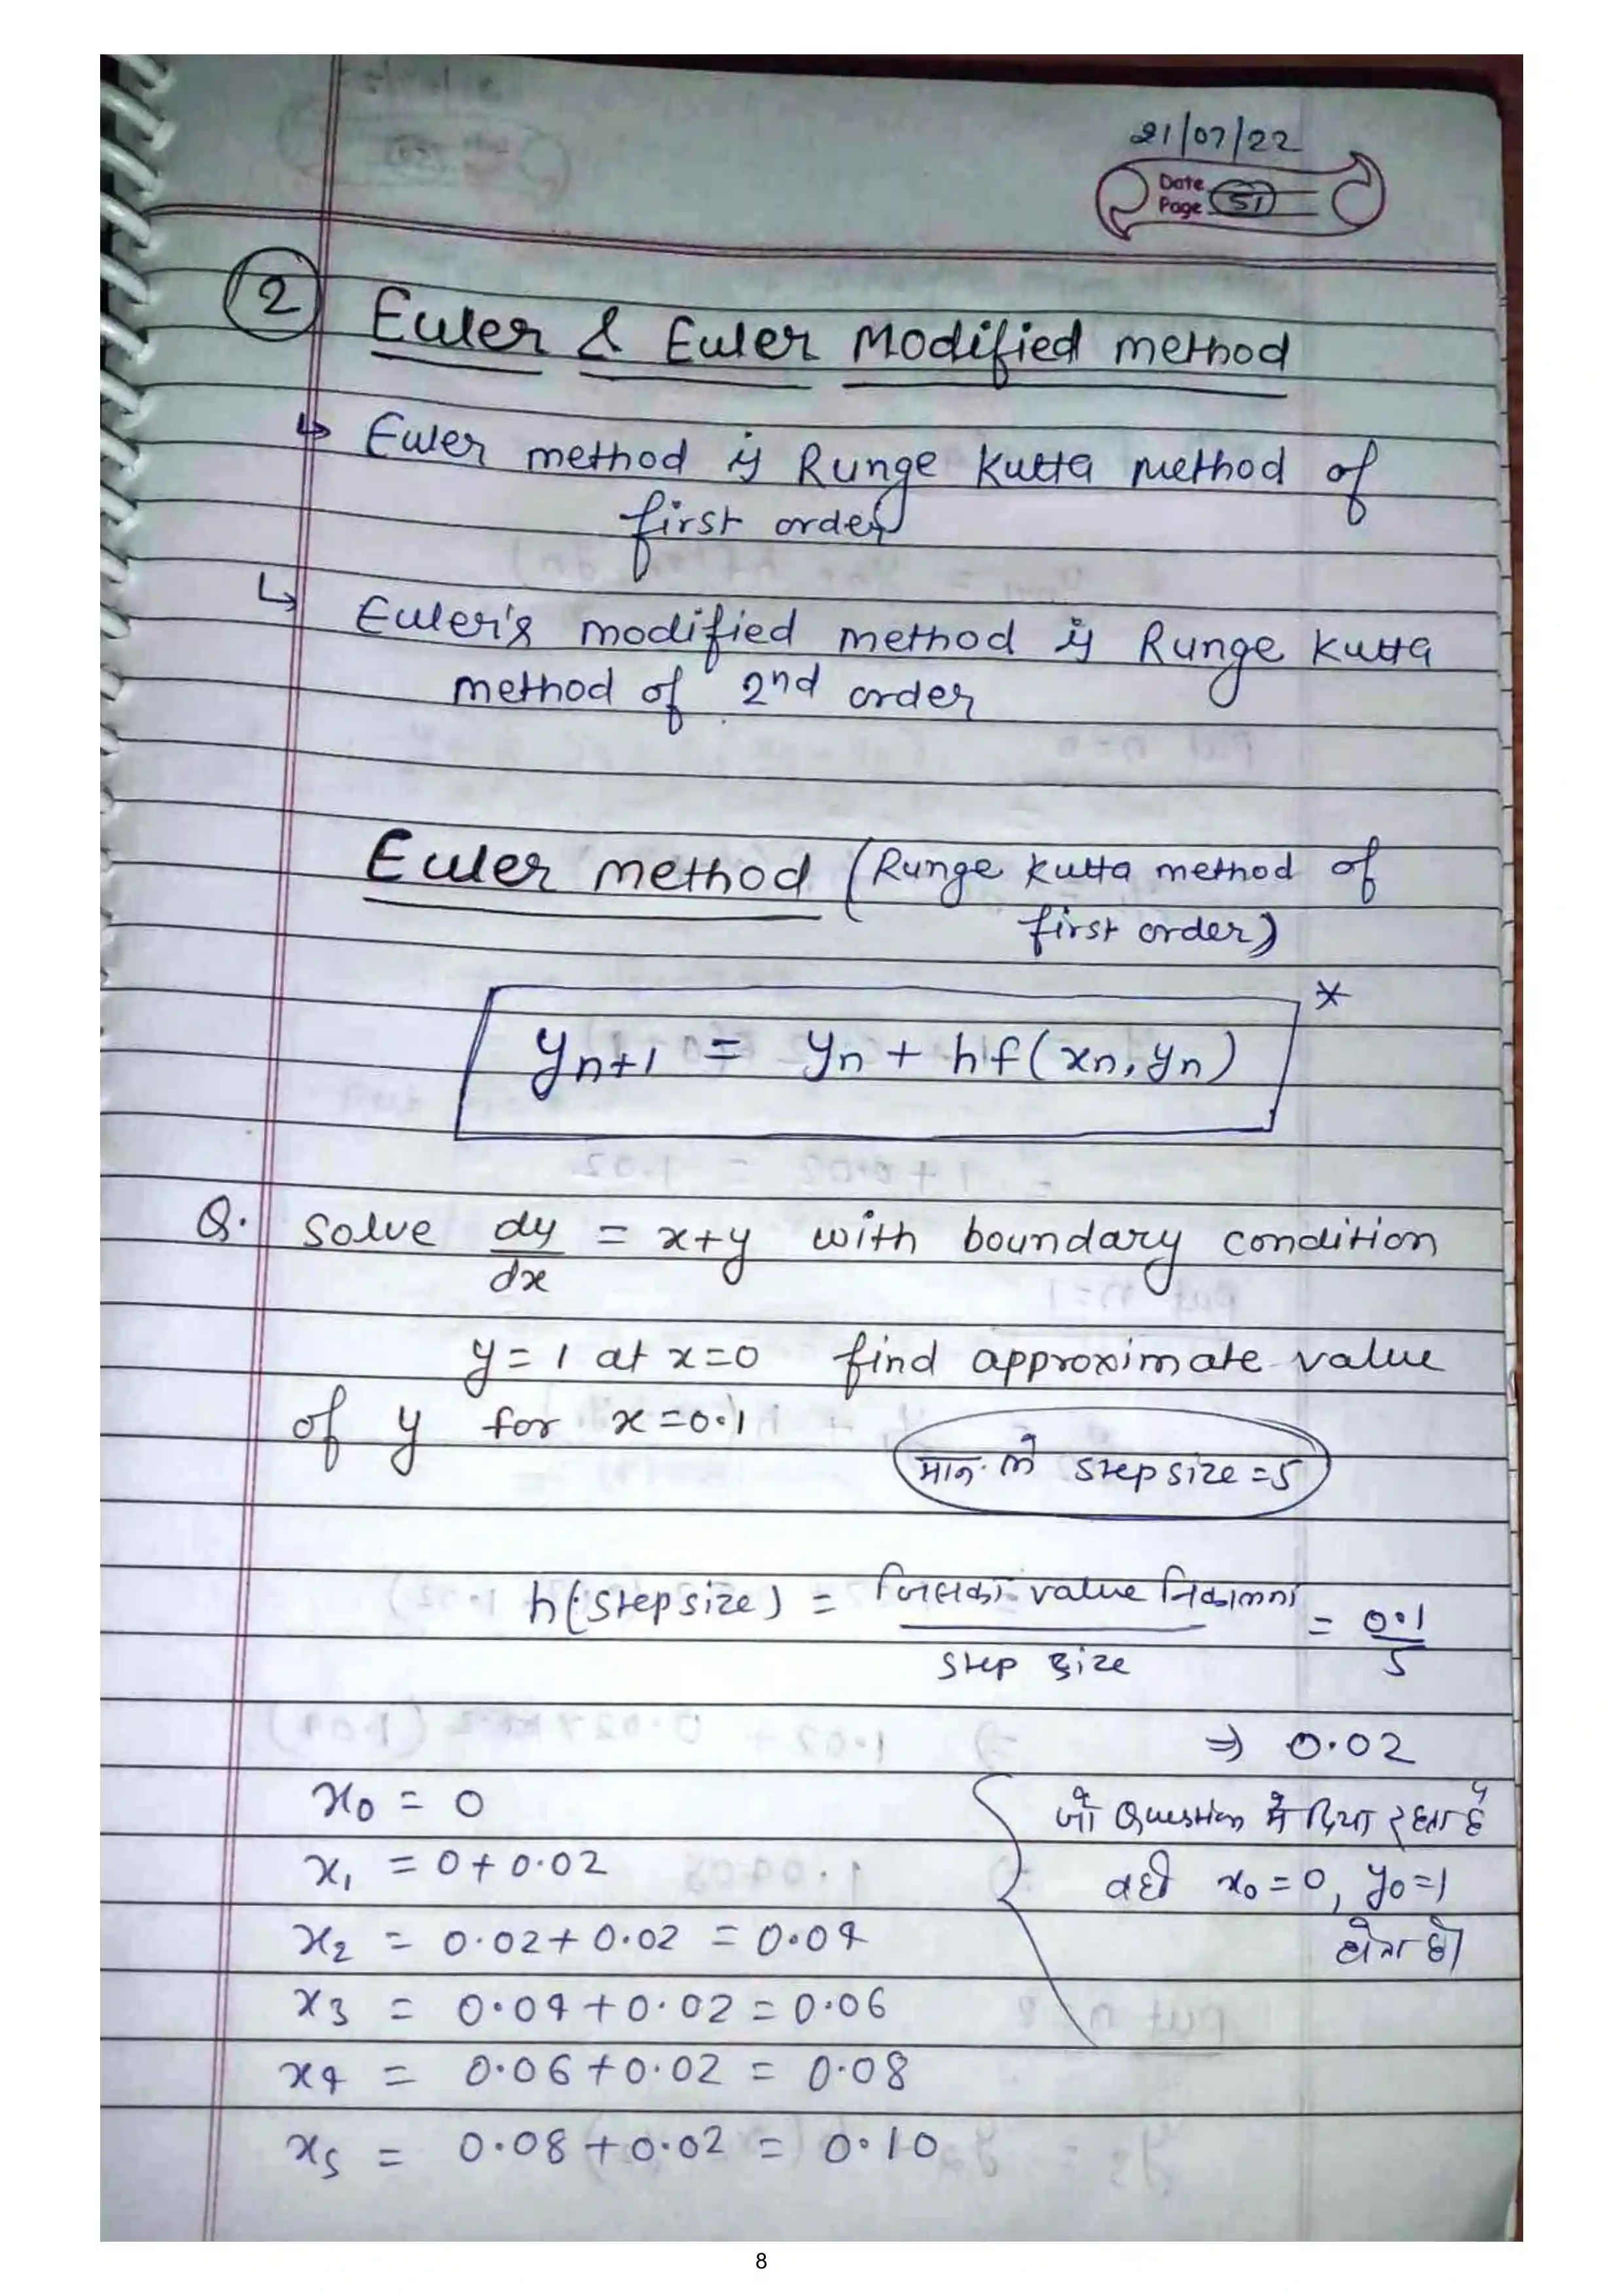 21/07/22
Date
Page 51
2 Euler & Euler Modified method
↳ Euler method is Runge Kutta method of
first order
↳ Euler's modified method is Runge Kutta
method of 2nd order
Euler method (Runge Kutta method of
first order)
*
yn+1 = yn + hf(xn, yn)
Q. Solve dy/dx = x+y with boundary condition
y = 1 at x=0 find approximate value
of y for x=0.1
मान लो step size = 5
h(step size) = जिसका value निकालना / step size = 0.1/5
⇒ 0.02
x0 = 0
जो Question में दिया रहता है
x1 = 0+0.02
वही x0 = 0, y0=1
x2 = 0.02+0.02 = 0.04
होता है।
x3 = 0.04+0.02 = 0.06
x4 = 0.06+0.02 = 0.08
x5 = 0.08+0.02 = 0.10
8